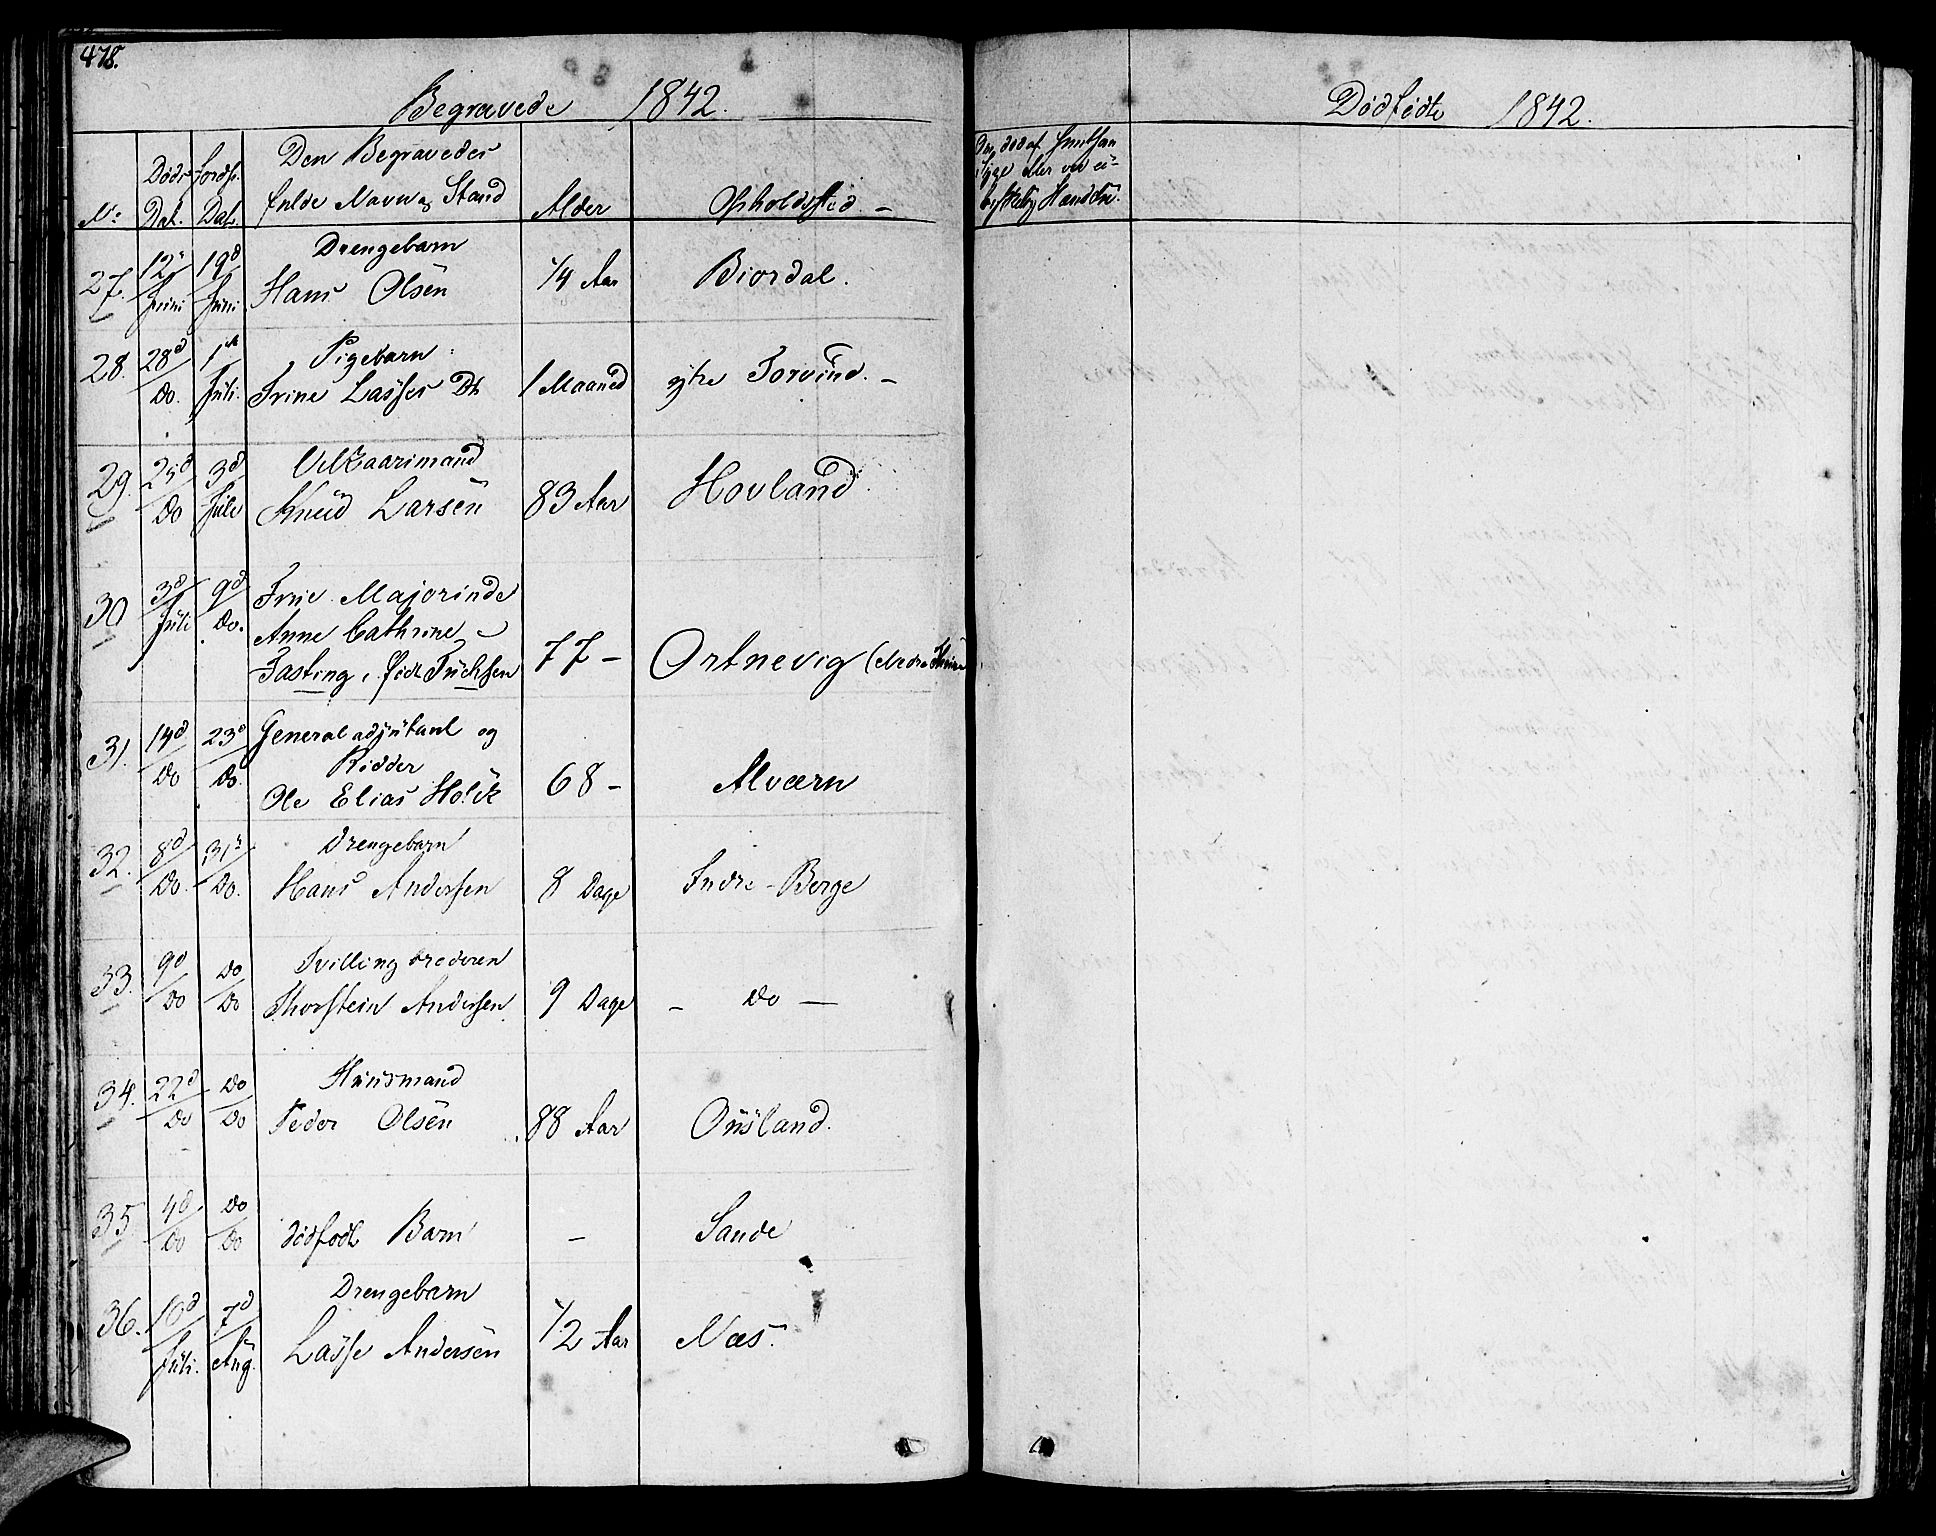 478.
Begravede 1842.
Døds Dat. Jordf. Dat.
Den Begravedes
fulde Navn og Stand
No: Alder Opholdssted. -
27. 12te/Juni 19d/Juni Drengebarn
Hans Olsen 1/4 Aar Biordal.
28. 28d/do. 1ste/Juli. Pigebarn
Trine Lasses Dtr 1 Maaned ytre Torvund. -
29. 25d/do 3d/Juli Vilkaarsmand
Knud Larsen 83 Aar Hovland
30 3d/Juli 9d/do. Frue Majorinde
Anne Cathrine
Fasting, født Fuchsen 77 - Ortnevig
31. 14d/do 23d/do. Generaladjutant og
Ridder
Ole Elias Holck 68 - Alværn
32. 8d/do. 31te/do. Drengebarn
Hans Andersen 8 Dage Indre-Berge
33. 9d/do do/do Tvillingbroderen
Thorstein Andersen 9 Dage - do -
34. 22d/do do/do Huusmand
Peder Olsen 88 Aar Ouusland.
35 4d/do do/do dødfødt Barn - Sande
36. 10d/Juli. 7d/Aug. Drengebarn
Lasse Andersen 1/2 Aar Næs.
Dødfødte 1842.
Om død af Smitsom
Syge eller ved
Hændelse.